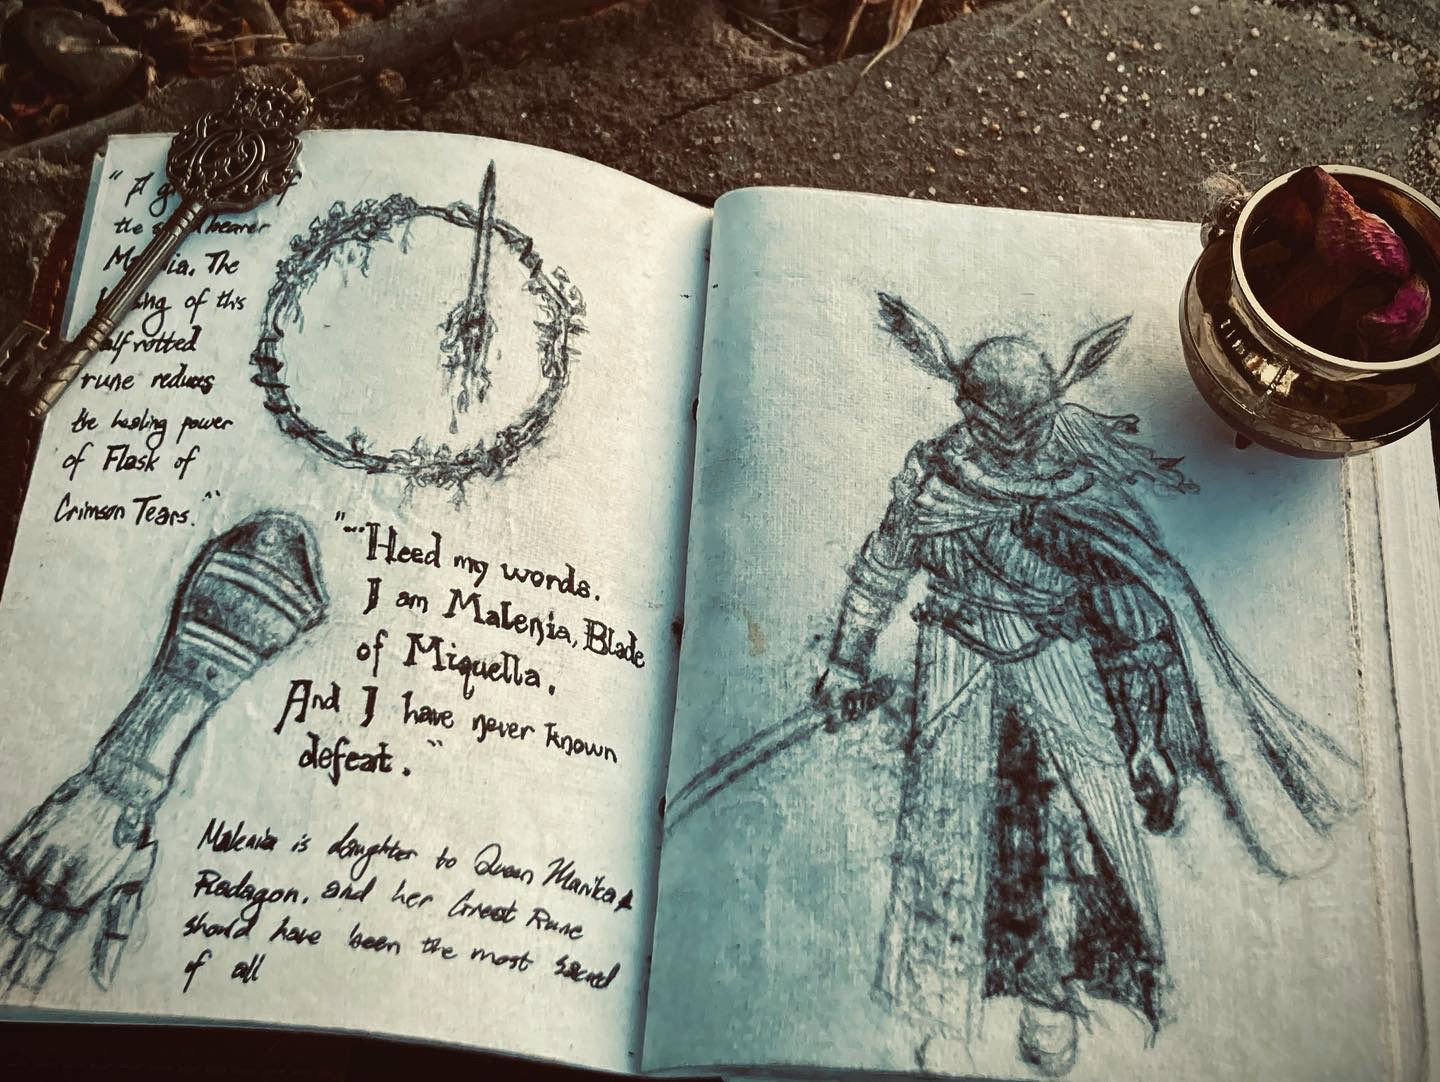 "A of
the bearer
The
of this
rotted
rune reduces
the healing power
of Flask of
Crimson Tears."
"...Heed my words.
I am Malenia, Blade
of Miquella.
And I have never known
defeat."
Malenia is daughter to Queen Marika &
Radagon, and her Great Rune
should have been the most sacred
of all